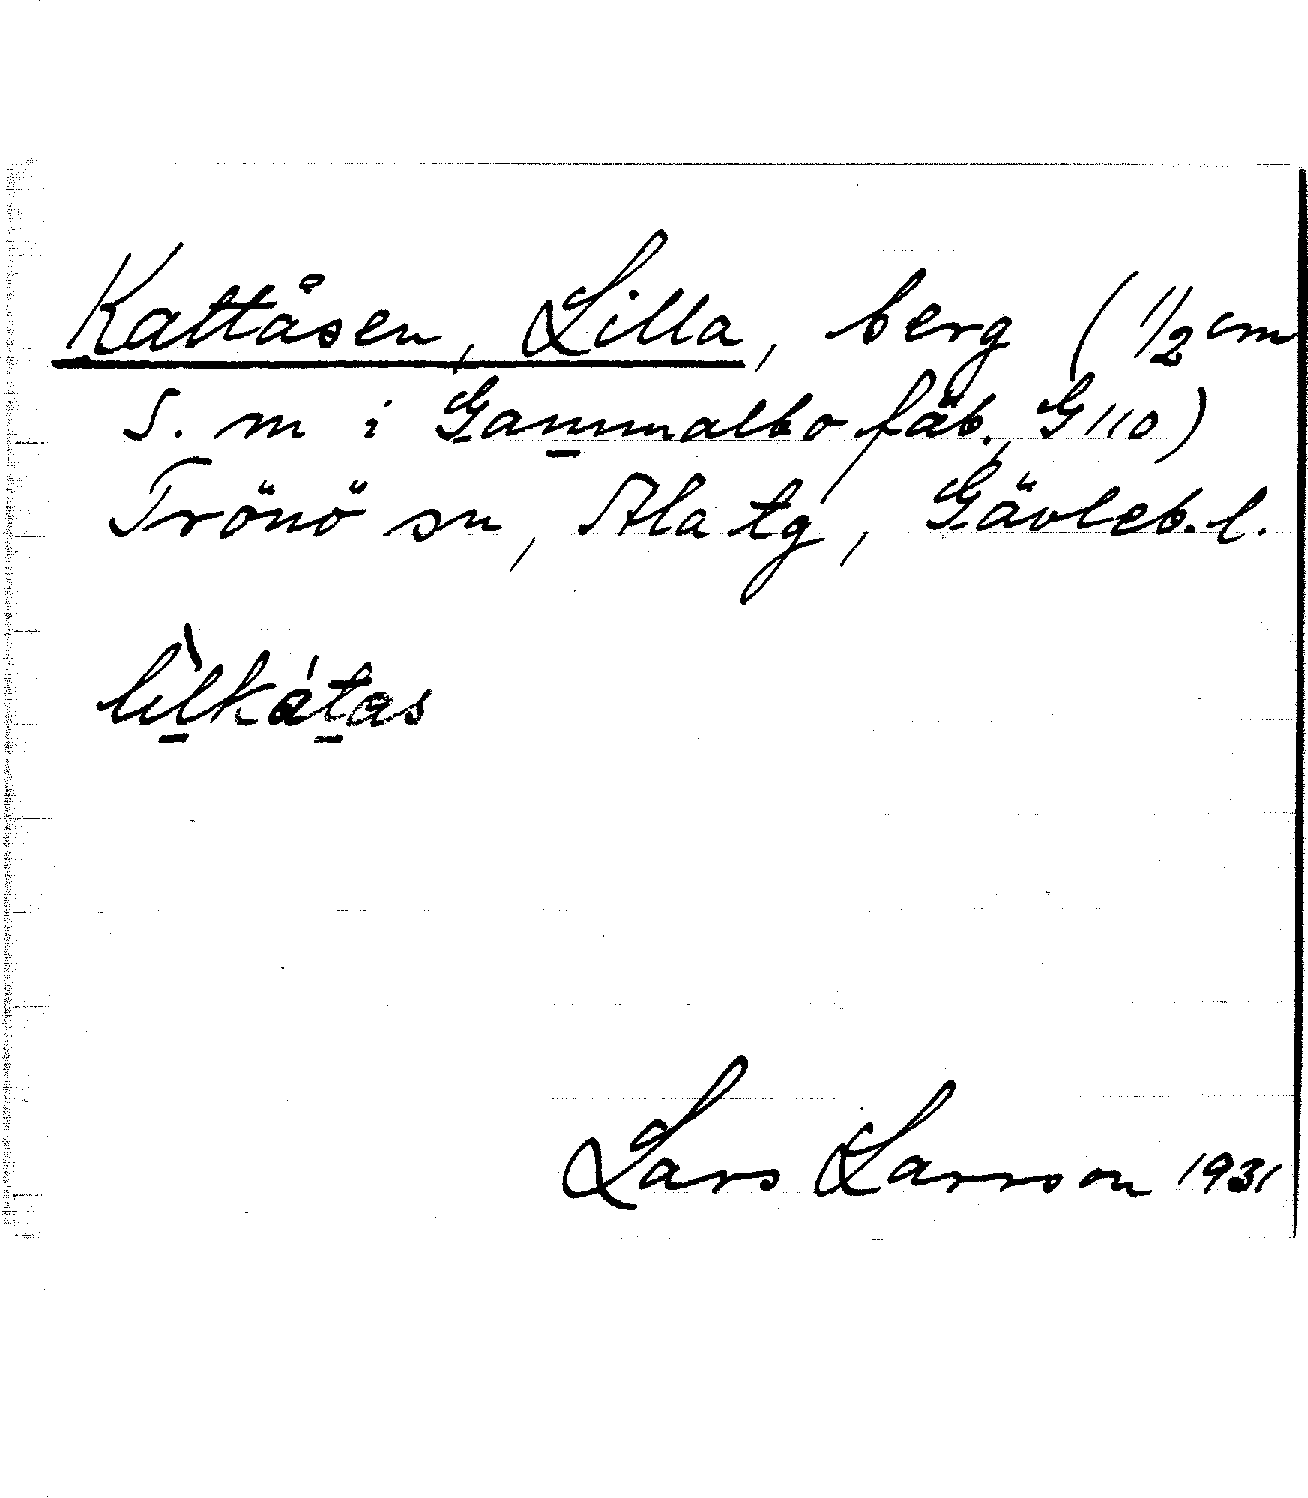 Kattåsen, Lilla, berg (1/2 cm
S. m i Gammalbo fäb., G110)
Trönö sn, Ala tg, Gävleb. l.
lìlkátas
Lars Larsson 1931